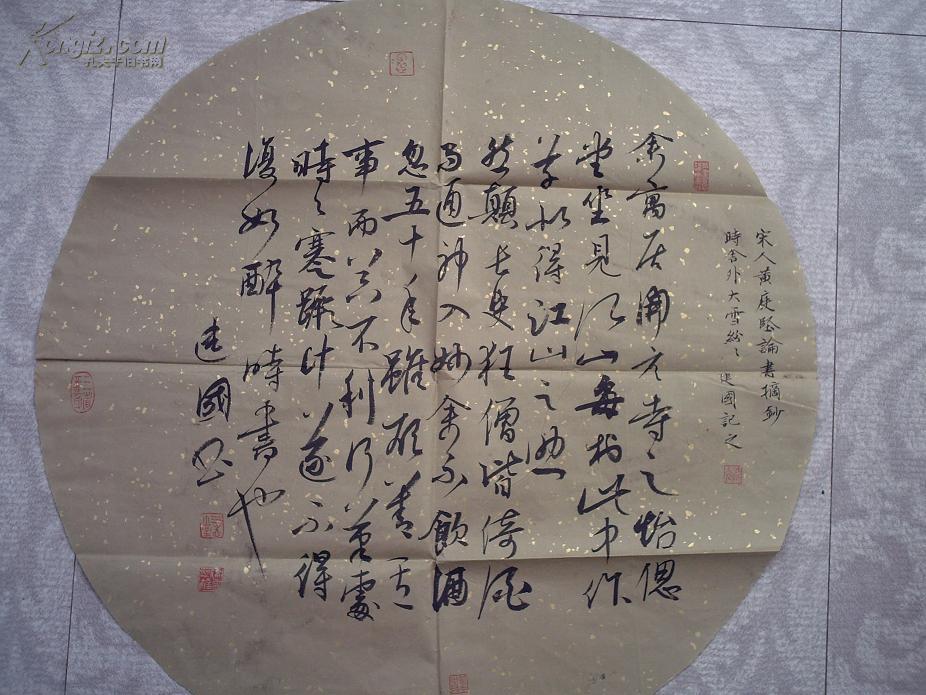 宋人黃庭堅論書摘鈔
時舍外大雪紛〻建國記之
余寓居開元寺之怡偲
堂坐見江山每於此中作
草似得江山之助
然顛長史狂僧皆倚酒
而通神入妙余不飲酒
忽五十年雖欲善其
事而器不利行筆處
時〻蹇蹶計遂不得
復如醉時書也
建國書
Kongfz.com
孔夫子旧书网